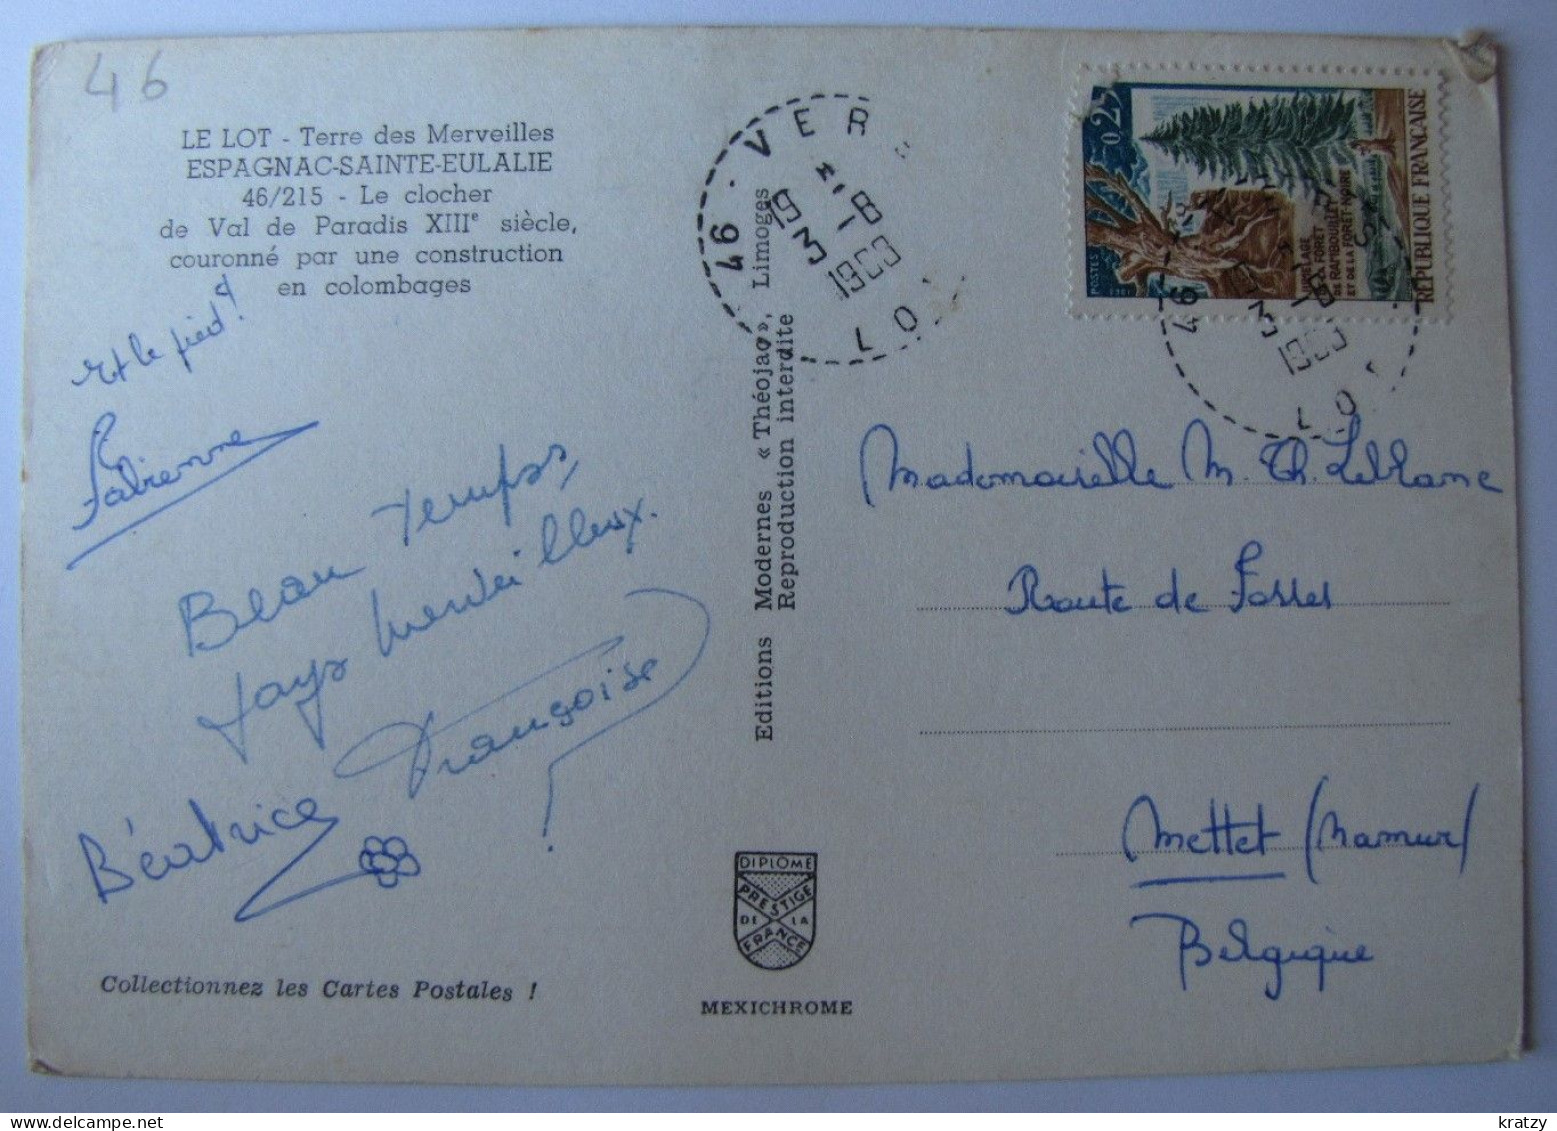 46
LE LOT - Terre des Merveilles
ESPAGNAC-SAINTE-EULALIE
46/215 - Le clocher
de Val de Paradis XIIIe siècle,
couronné par une construction
en colombages
et le pied!
Fabienne
Beau temps,
pays merveilleux.
Françoise
Béatrice
Collectionnez les Cartes Postales !
Editions Modernes « Théojac », Limoges
Reproduction interdite
DIPLÔME
PRESTIGE
DE LA
FRANCE
MEXICHROME
46 · VER
19 H
3 - 8
LOT
0,25
POSTES
JUMELAGE
DE LA FORÊT
DE RAMBOUILLET
ET DE LA FORÊT-NOIRE
RÉPUBLIQUE FRANÇAISE
46
LOT
Mademoiselle M. Th. Leblanc
Route de Fosses
Mettet (Namur)
Belgique
kratzy